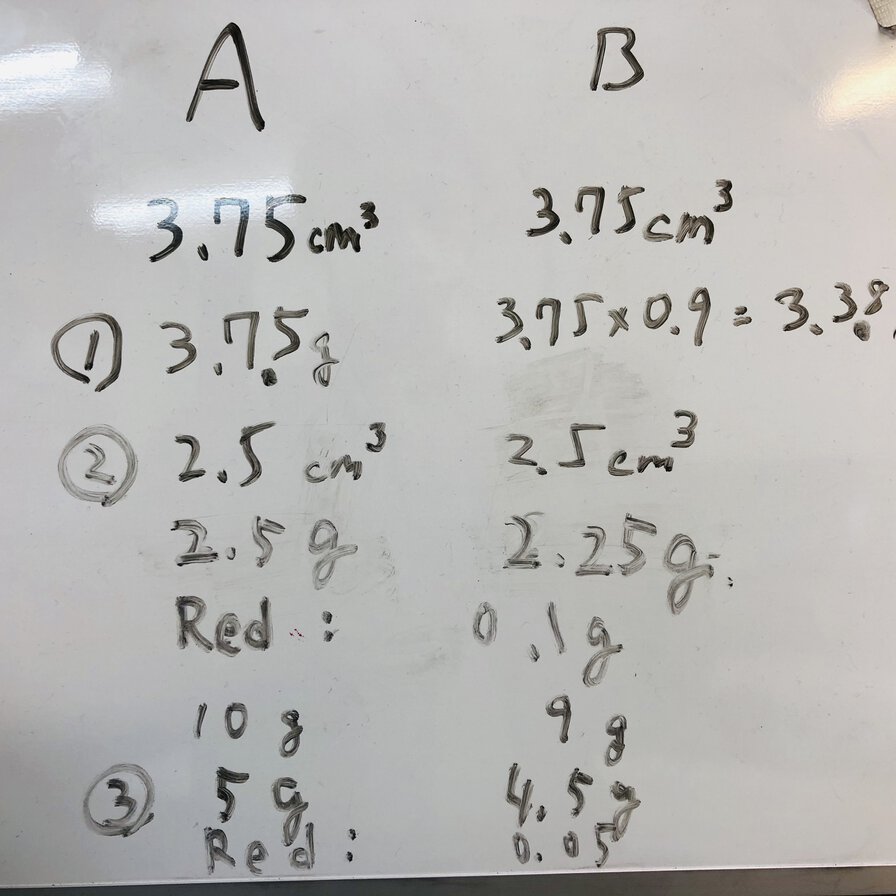 A B
3.75cm³ 3.75cm³
① 3.75g 3.75×0.9=3.38
② 2.5 cm³ 2.5cm³
2.5 g 2.25g
Red : 0.1g
10 g 9 g
③ 5g 4.5g
Red : 0.05